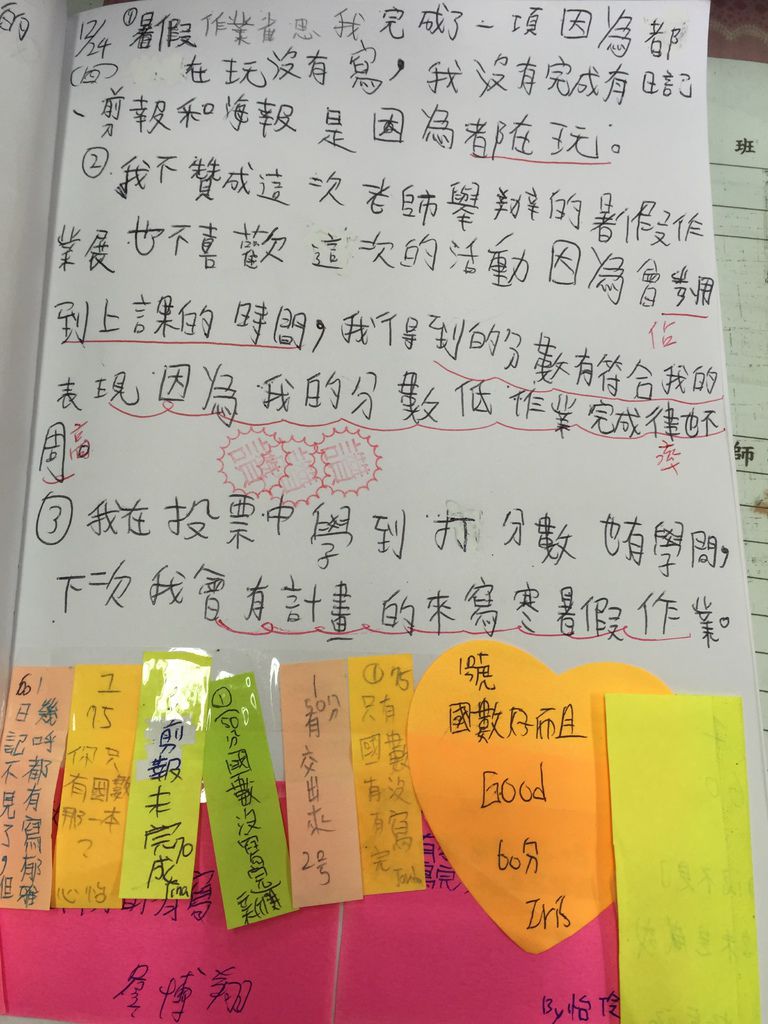 的
12/24 ①暑假作業省思我完成了一項因為都
(四) 在玩沒有寫，我沒有完成有日記
、剪報和海報是因為都在玩。
②我不贊成這次老師舉辦的暑假作
業展也不喜歡這次的活動因為會
到上課的時間，我得到的分數有符合我的
佔
表現因為我的分數低作業完成律也不
率
周高
讚讚讚
③我在投票中學到打分數也有學問，
下次我會有計畫的來寫寒暑假作業。
班
師
1
60
幾乎都有寫
日記不見了，但
1
75
只有國數
你那一本
？
心怡
剪報未完成
70
Tina
①
60分國數沒寫完
1
80分
有交出來
2号
①75
只有國數沒有寫完
1號
國數好而且
Good
60分
Iris
博翔
By怡